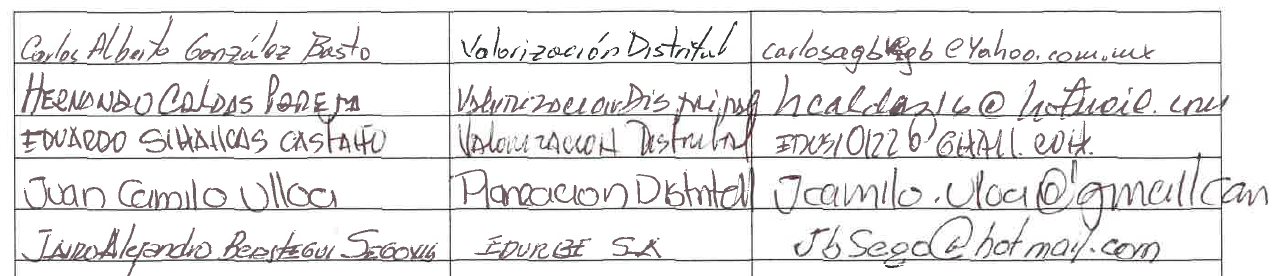 Carlos Alberto González Basto Valorización Distrital carlosagb@yahoo.com.mx
HERNANDO CALDAS PAREJA Valorizacion Distrital
EDUARDO SIMANCAS CASTAÑO VALORIZACION Distrital
Juan Camilo Ulloa Planeacion Distrital Jcamilo.Uloa@gmail.com
Alejandro BERASTEGUI SEGOVIA EDURBE S.A JbSego@hotmail.com